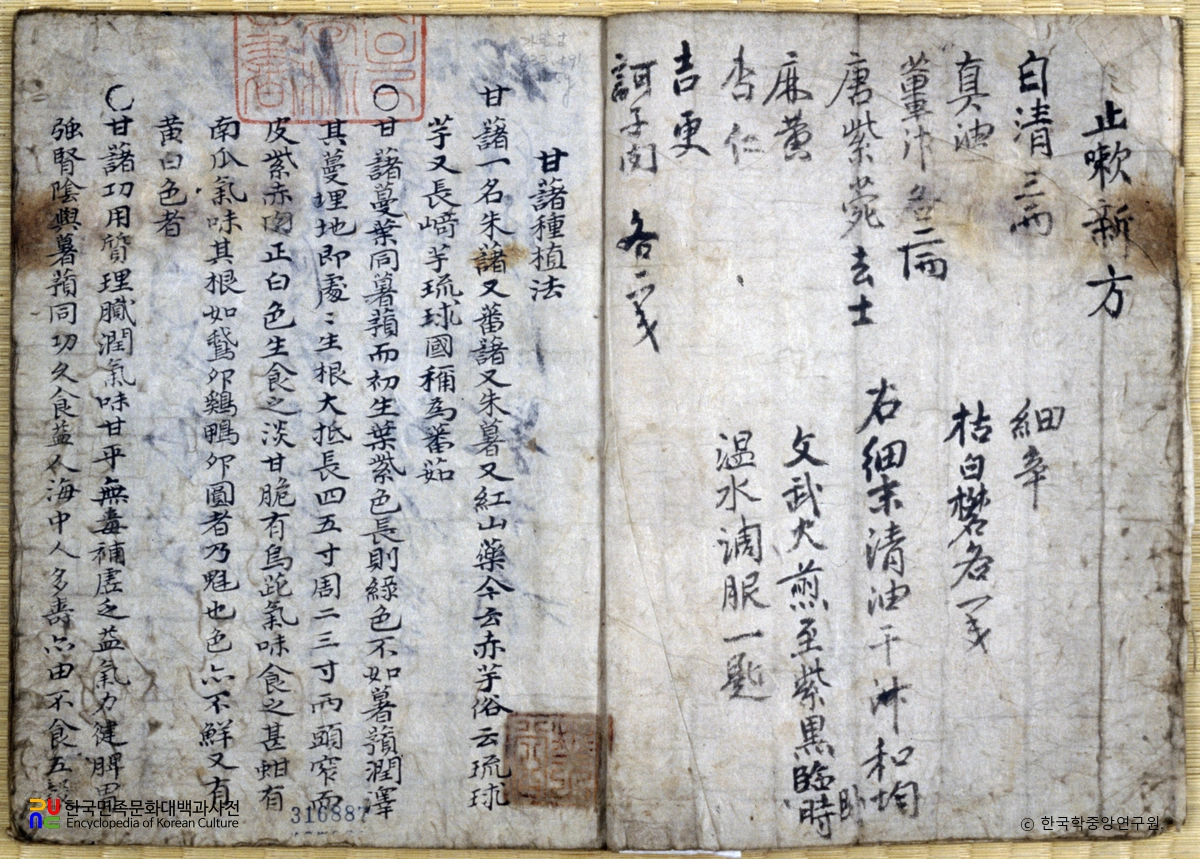 止嗽新方
白清三両
細辛
真油
枯白礬各一戔
薑汁各二両
唐紫菀去土
右細末清油干汁和均
麻黄
文武火煎至紫黒臨時
杏仁
温水調服一匙
吉更
訶子肉 各二戔
甘藷種植法
甘藷一名朱藷又蕃藷又朱薯又紅山藥今云赤芋俗云琉球
芋又長﨑芋琉球國稱為蕃茹
〇甘藷蔓葉同薯蕷而初生葉紫色長則綠色不如薯蕷潤澤
其蔓埋地即處〻生根大抵長四五寸周二三寸而頭窄而
皮紫赤肉正白色生食之淡甘脆有烏芘氣味食之甚甜有
南瓜氣味其根如鵞卵鷄鴨卵圓者乃魁也色亦不鮮又有
黃白色者
〇甘藷功用質理膩潤氣味甘平無毒補虛乏益氣力健脾胃
強腎陰與薯蕷同功久食益人海中人多壽亦由不食五穀
316887
한국민족문화대백과사전
Encyclopedia of Korean Culture
© 한국학중앙연구원